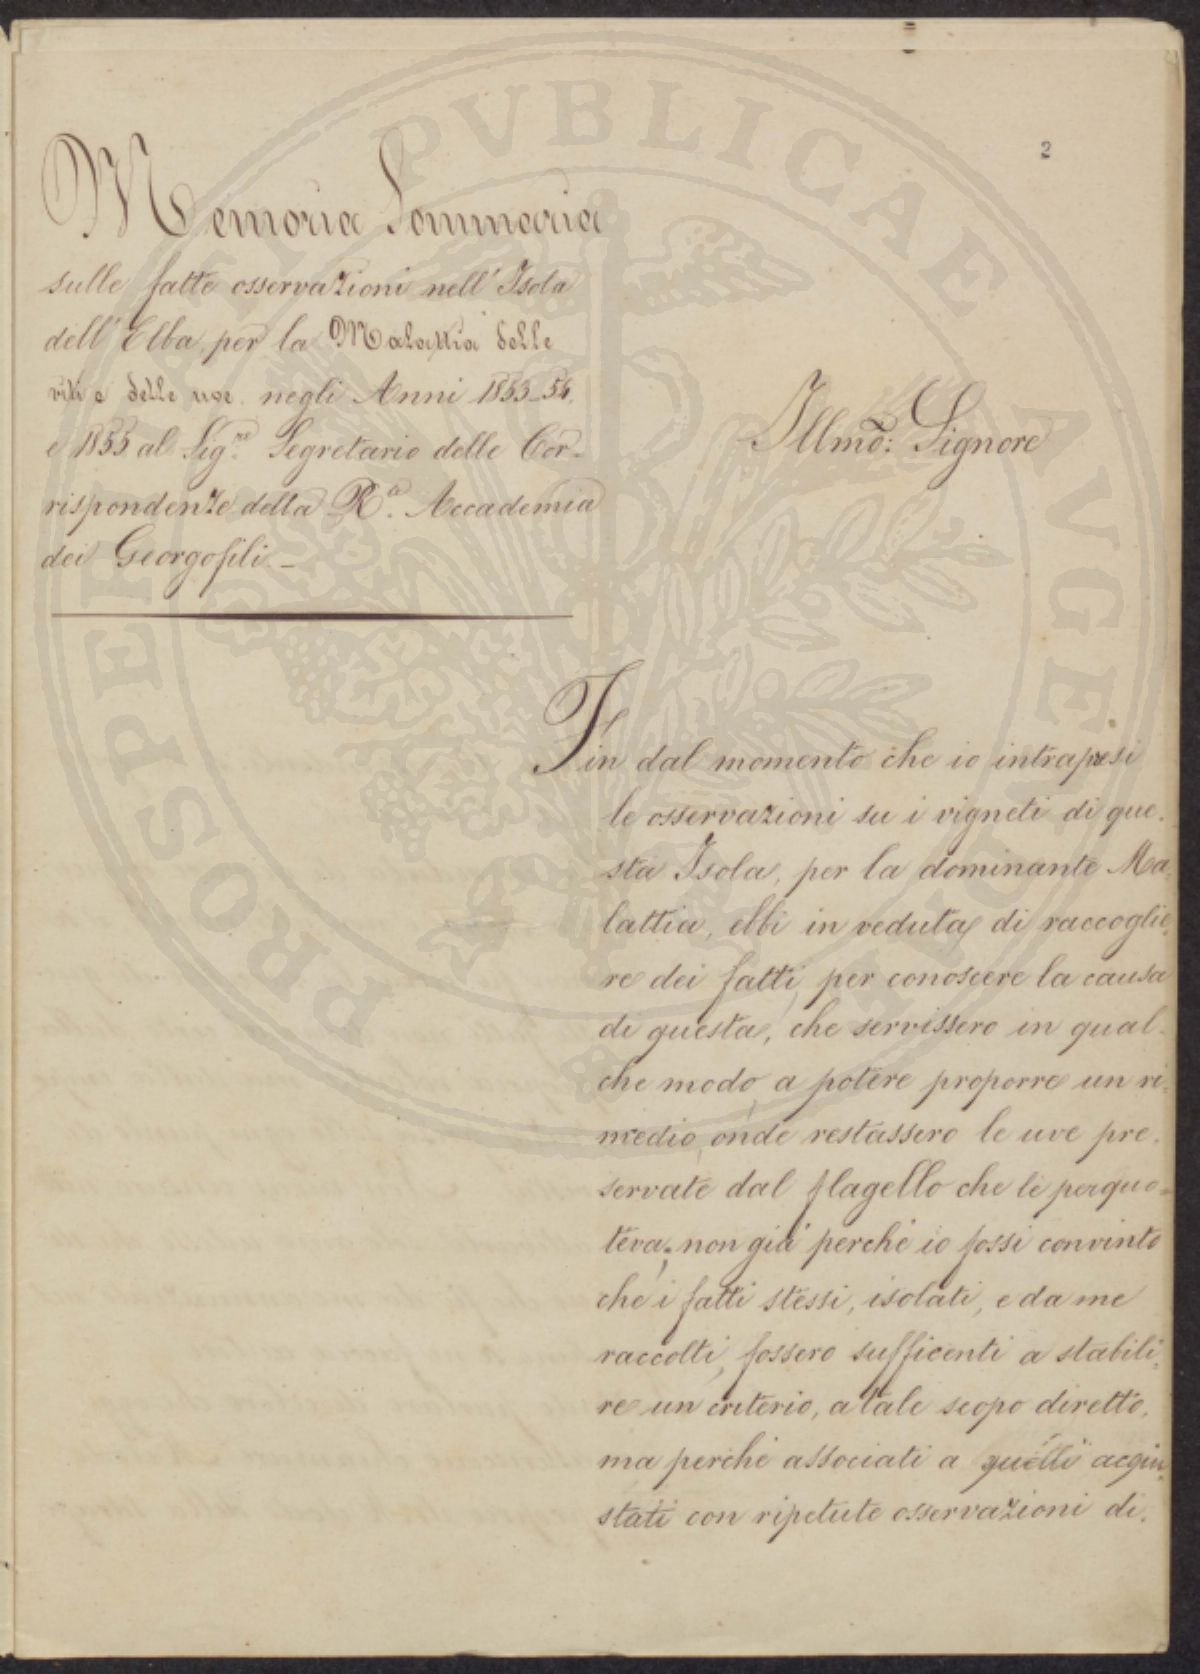 2
Memoria Sommaria
sulle fatte osservazioni nell'Isola
dell'Elba, per la Malattia delle
viti e delle uve negli Anni 1853-54.
e 1855 al Sigre. Segretario delle Cor-
rispondenze della Ra. Accademia
dei Georgofili. -
Illmo: Signore
Fin dal momento che io intrapresi
le osservazioni su i vigneti di que-
sta Isola, per la dominante Ma-
lattia, ebbi in veduta di raccoglie-
re dei fatti, per conoscere la causa
di questa, che servissero in qual-
che modo, a potere proporre un ri-
medio, onde restassero le uve pre-
servate dal flagello che le perquo-
teva; non già perché io fossi convinto
che i fatti stessi, isolati, e da me
raccolti, fossero sufficenti a stabili-
re un criterio, a tale scopo diretto,
ma perché associati a quelli acqui-
stati con ripetute osservazioni di.
PROSPERITATI PVBLICAE AVGENDAE